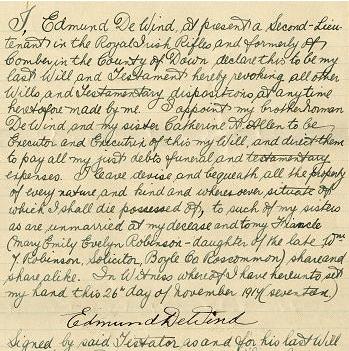 I, Edmund De Wind, at present a Second-Lieu-
tenant in the Royal Irish Rifles and formerly of
Comber in the County of Down declare this to be my
last Will and Testament hereby revoking all other
Wills and Testamentary dispositions at any time
heretofore made by me. I appoint my brother Norman
De Wind and my sister Catherine A. Allen to be
Executor and Executrix of this my Will, and direct them
to pay all my just debts funeral and testamentary
expenses. I leave devise and bequeath all the property
of every nature and kind and wheresoever situate of
which I shall die possessed of, to such of my sisters
as are unmarried at my decease and to my Fiancée
(Mary Emily Evelyn Robinson - daughter of the late Wm
Robinson, Solicitor Boyle Co Roscommon) share and
share alike. In Witness whereof I have hereunto set
my hand this 26th day of November 1917 (seventeen)
Edmund De Wind
Signed by said Testator as and for his last Will